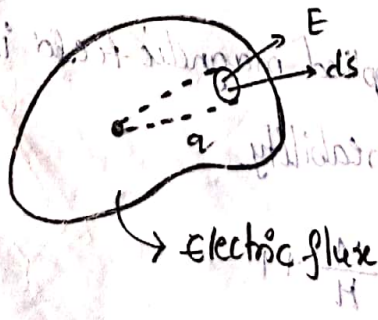 E
ds
q
Electric flux